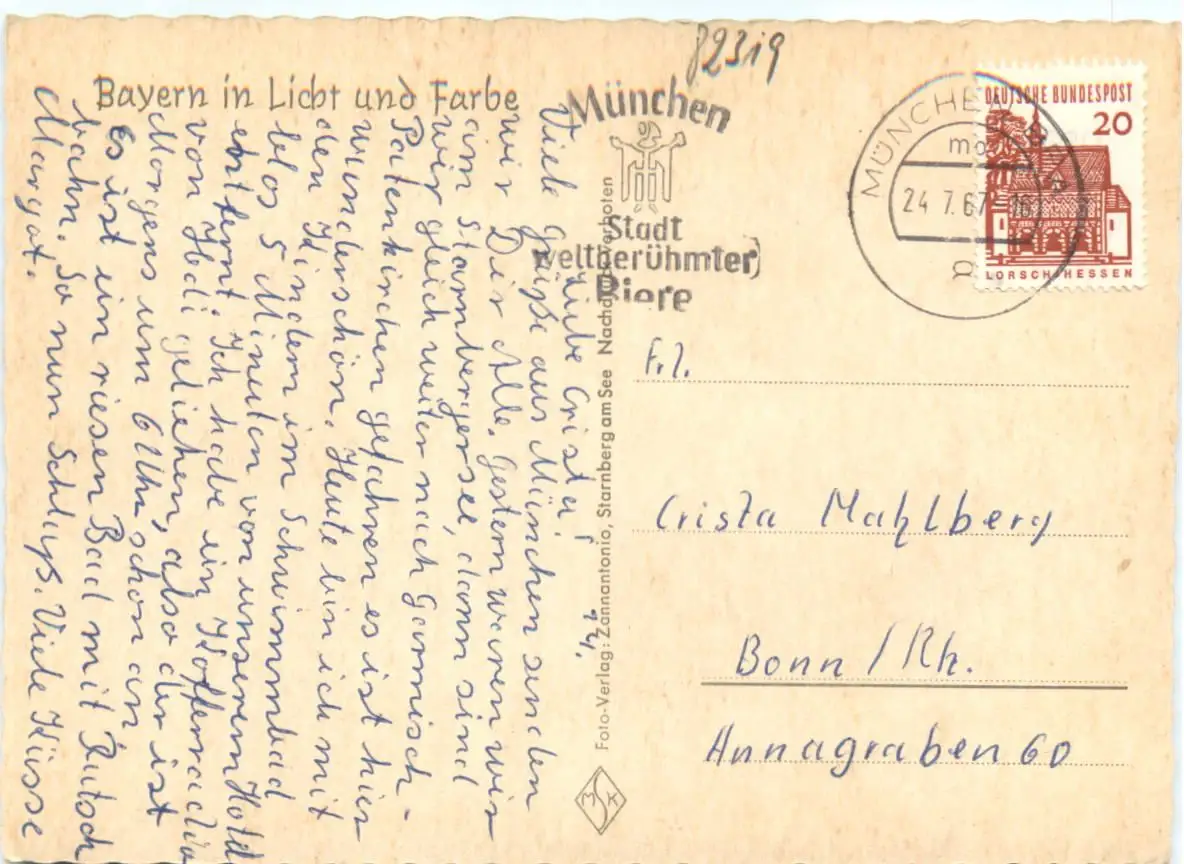 82319
Bayern in Licht und Farbe
München
Stadt
weltberühmter
Biere
MÜNCHEN
24.7.67
DEUTSCHE BUNDESPOST
20
LORSCH/HESSEN
Liebe Crista!
Viele Grüße aus München senden
wir Dir Alle. Gestern waren wir
am Starnbergersee, dann sind
wir gleich weiter nach Garmisch-
Patenkirchen gefahren es ist hier
wunderschön. Heute bin ich mit
den Kindern im Schwimmbad
blos 5 Minuten von unserem Hotel
entfernt. Ich habe ein Kofferradio
von Hedi geliehen, also der ist
Morgens um 6 Uhr schon an
Es ist ein riesen Bad mit Rutsch
bahn. So nun Schluß. Viele Küsse
Margot.
Foto-Verlag: Zannantonio, Starnberg am See Nachdruck verboten
MSK
Frl.
Crista Mahlberg
Bonn/Rh.
Annagraben 60